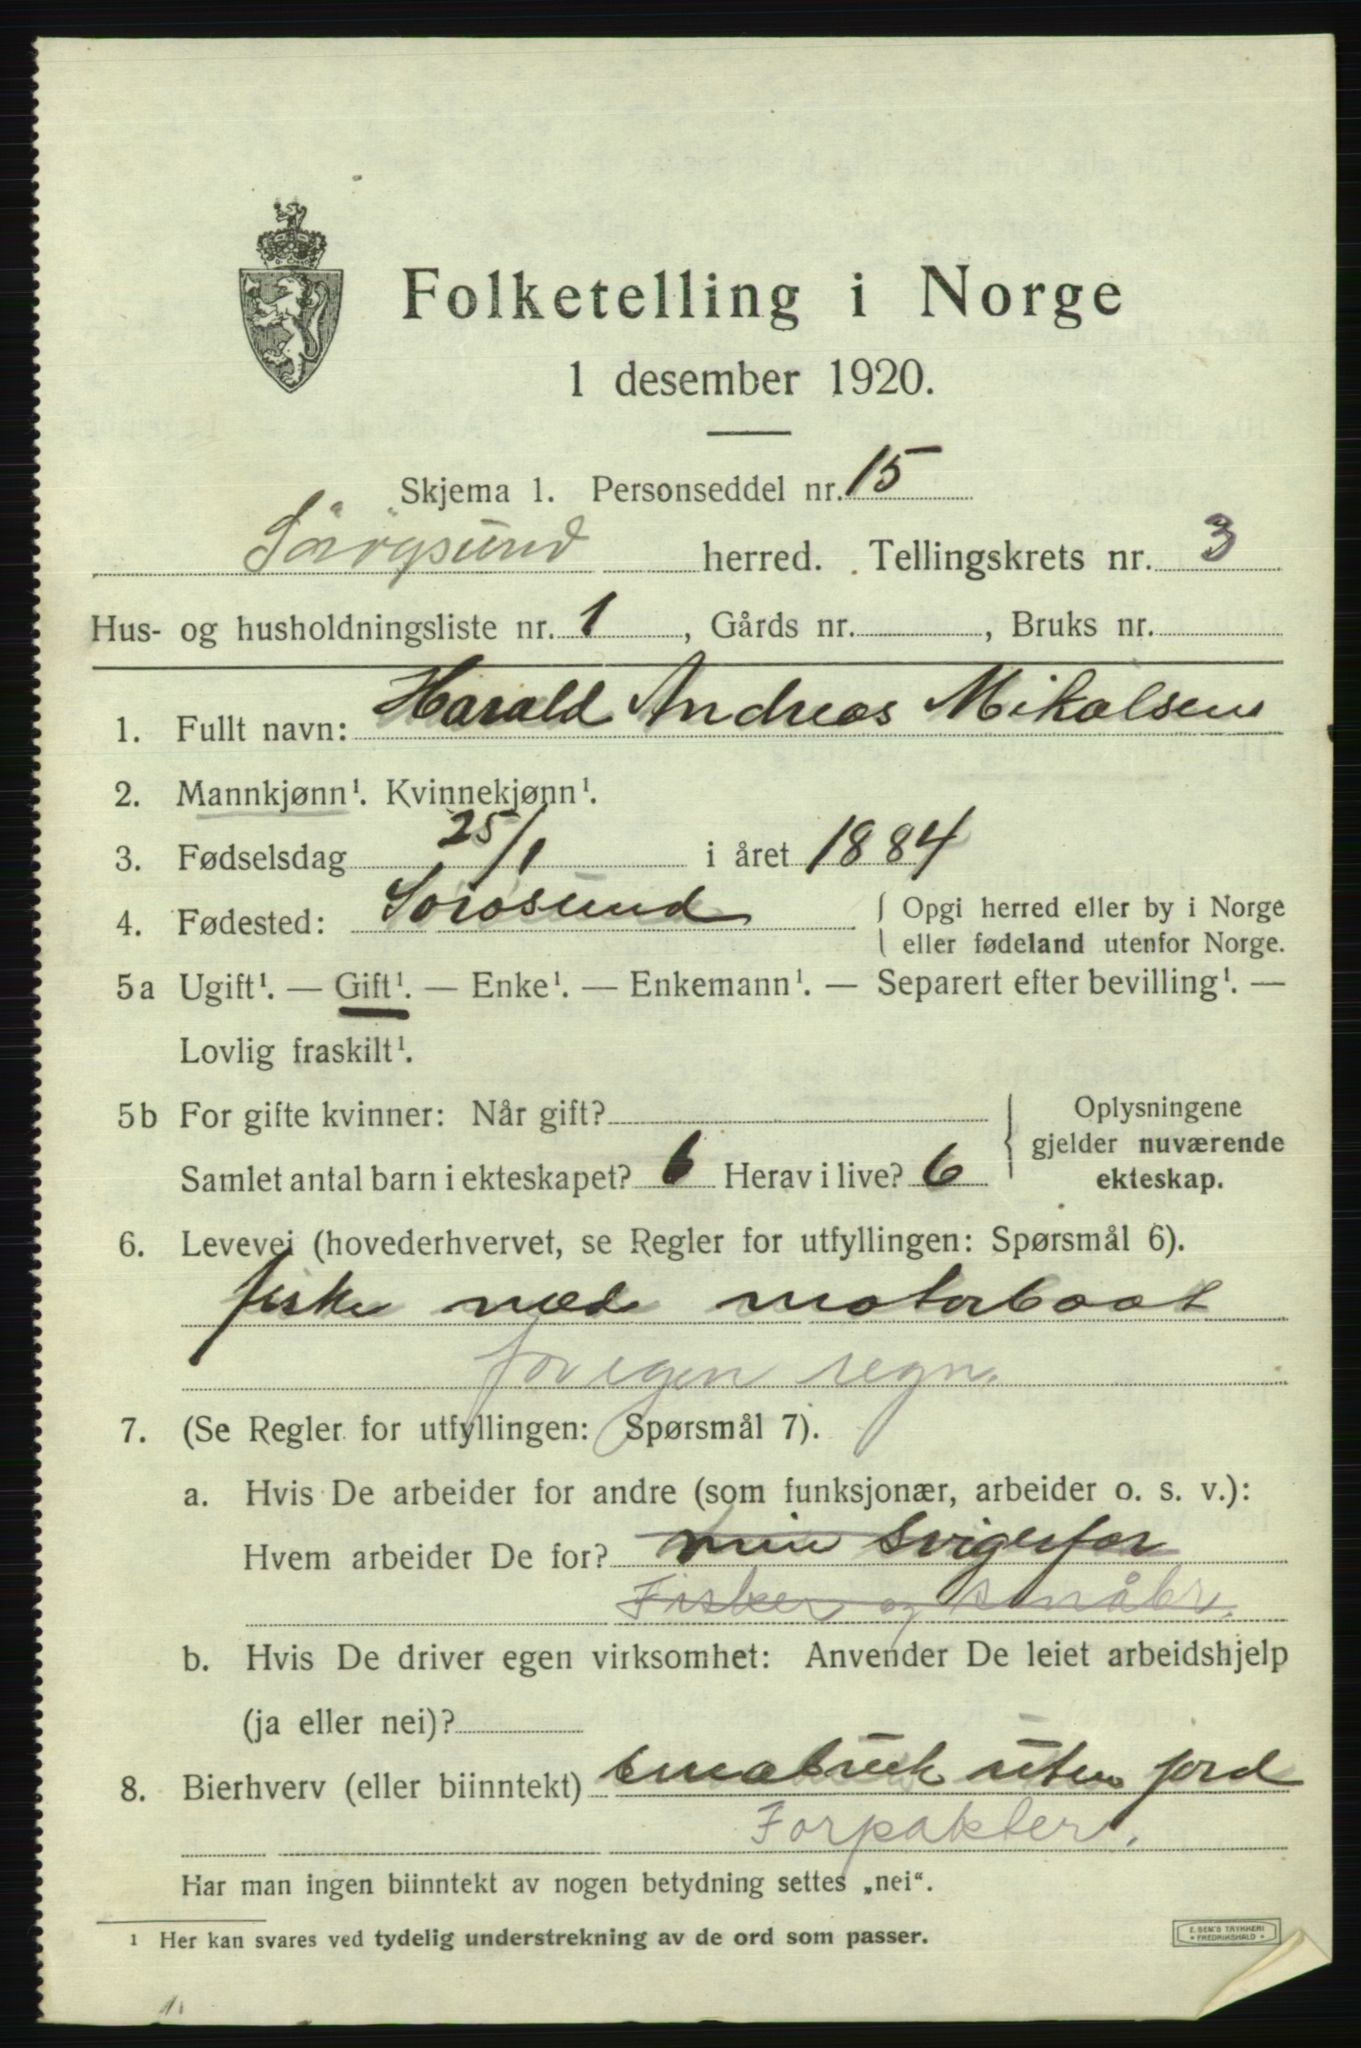 Folketelling i Norge
1 desember 1920.
Skjema 1. Personseddel nr. 15
Sörøysund herred. Tellingskrets nr. 3
Hus- og husholdningsliste nr. 1, Gårds nr. , Bruks nr.
1. Fullt navn: Harald Andreas Mikalsen
2. Mannkjønn¹. Kvinnekjønn¹.
3. Fødselsdag 25/1 i året 1884
4. Fødested: Sörösund { Opgi herred eller by i Norge
eller fødeland utenfor Norge.
5a Ugift¹. — Gift¹. — Enke¹. — Enkemann¹. — Separert efter bevilling¹. —
Lovlig fraskilt¹.
5b For gifte kvinner: Når gift?
Samlet antal barn i ekteskapet? 6 Herav i live? 6
Oplysningene
gjelder nuværende
ekteskap.
6. Levevei (hovederhvervet, se Regler for utfyllingen: Spørsmål 6).
fiske med motorbaat
for egen regn.
7. (Se Regler for utfyllingen: Spørsmål 7).
a. Hvis De arbeider for andre (som funksjonær, arbeider o. s. v.):
Hvem arbeider De for? min svigerfar
Fisker og småbr.
b. Hvis De driver egen virksomhet: Anvender De leiet arbeidshjelp
(ja eller nei)?
8. Bierhverv (eller biinntekt) smabruk uten jord
Forpakter.
Har man ingen biinntekt av nogen betydning settes „nei“.
¹ Her kan svares ved tydelig understrekning av de ord som passer.
E. SEM'S TRYKKERI
• FREDRIKSHALD •